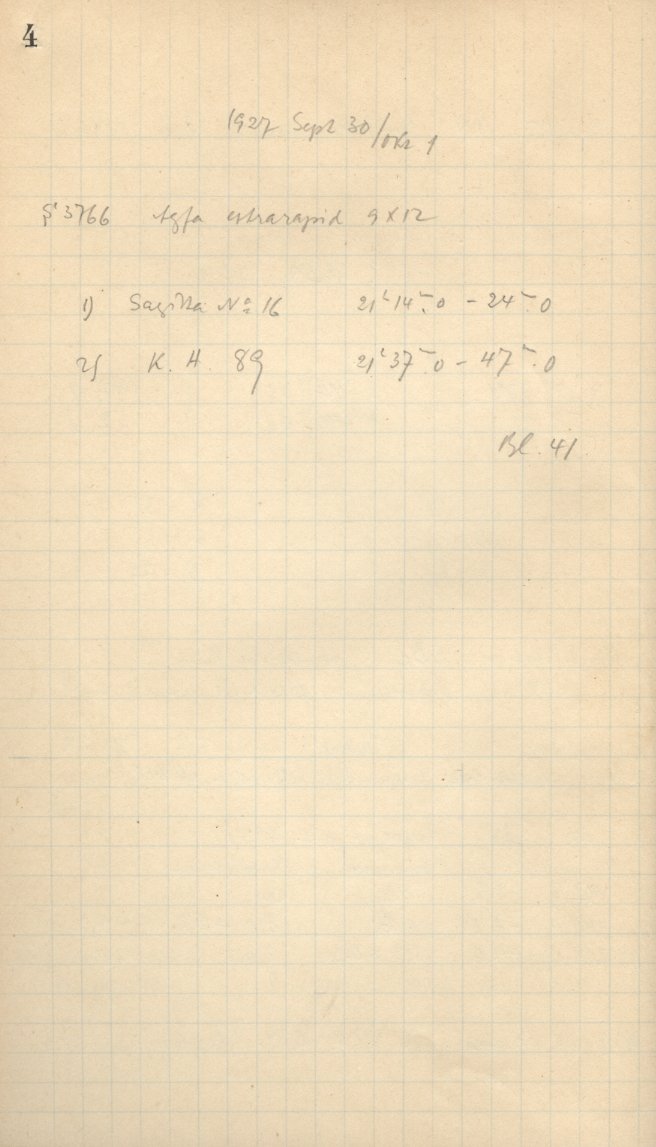 4
1927 Sept 30/Okt 1
S 3766 Agfa extrarapid 9 x 12
1) Sagitta No 16 21h 14m.0 - 24m.0
2) K. H. 89 21h 37m.0 - 47m.0
Bl. 41